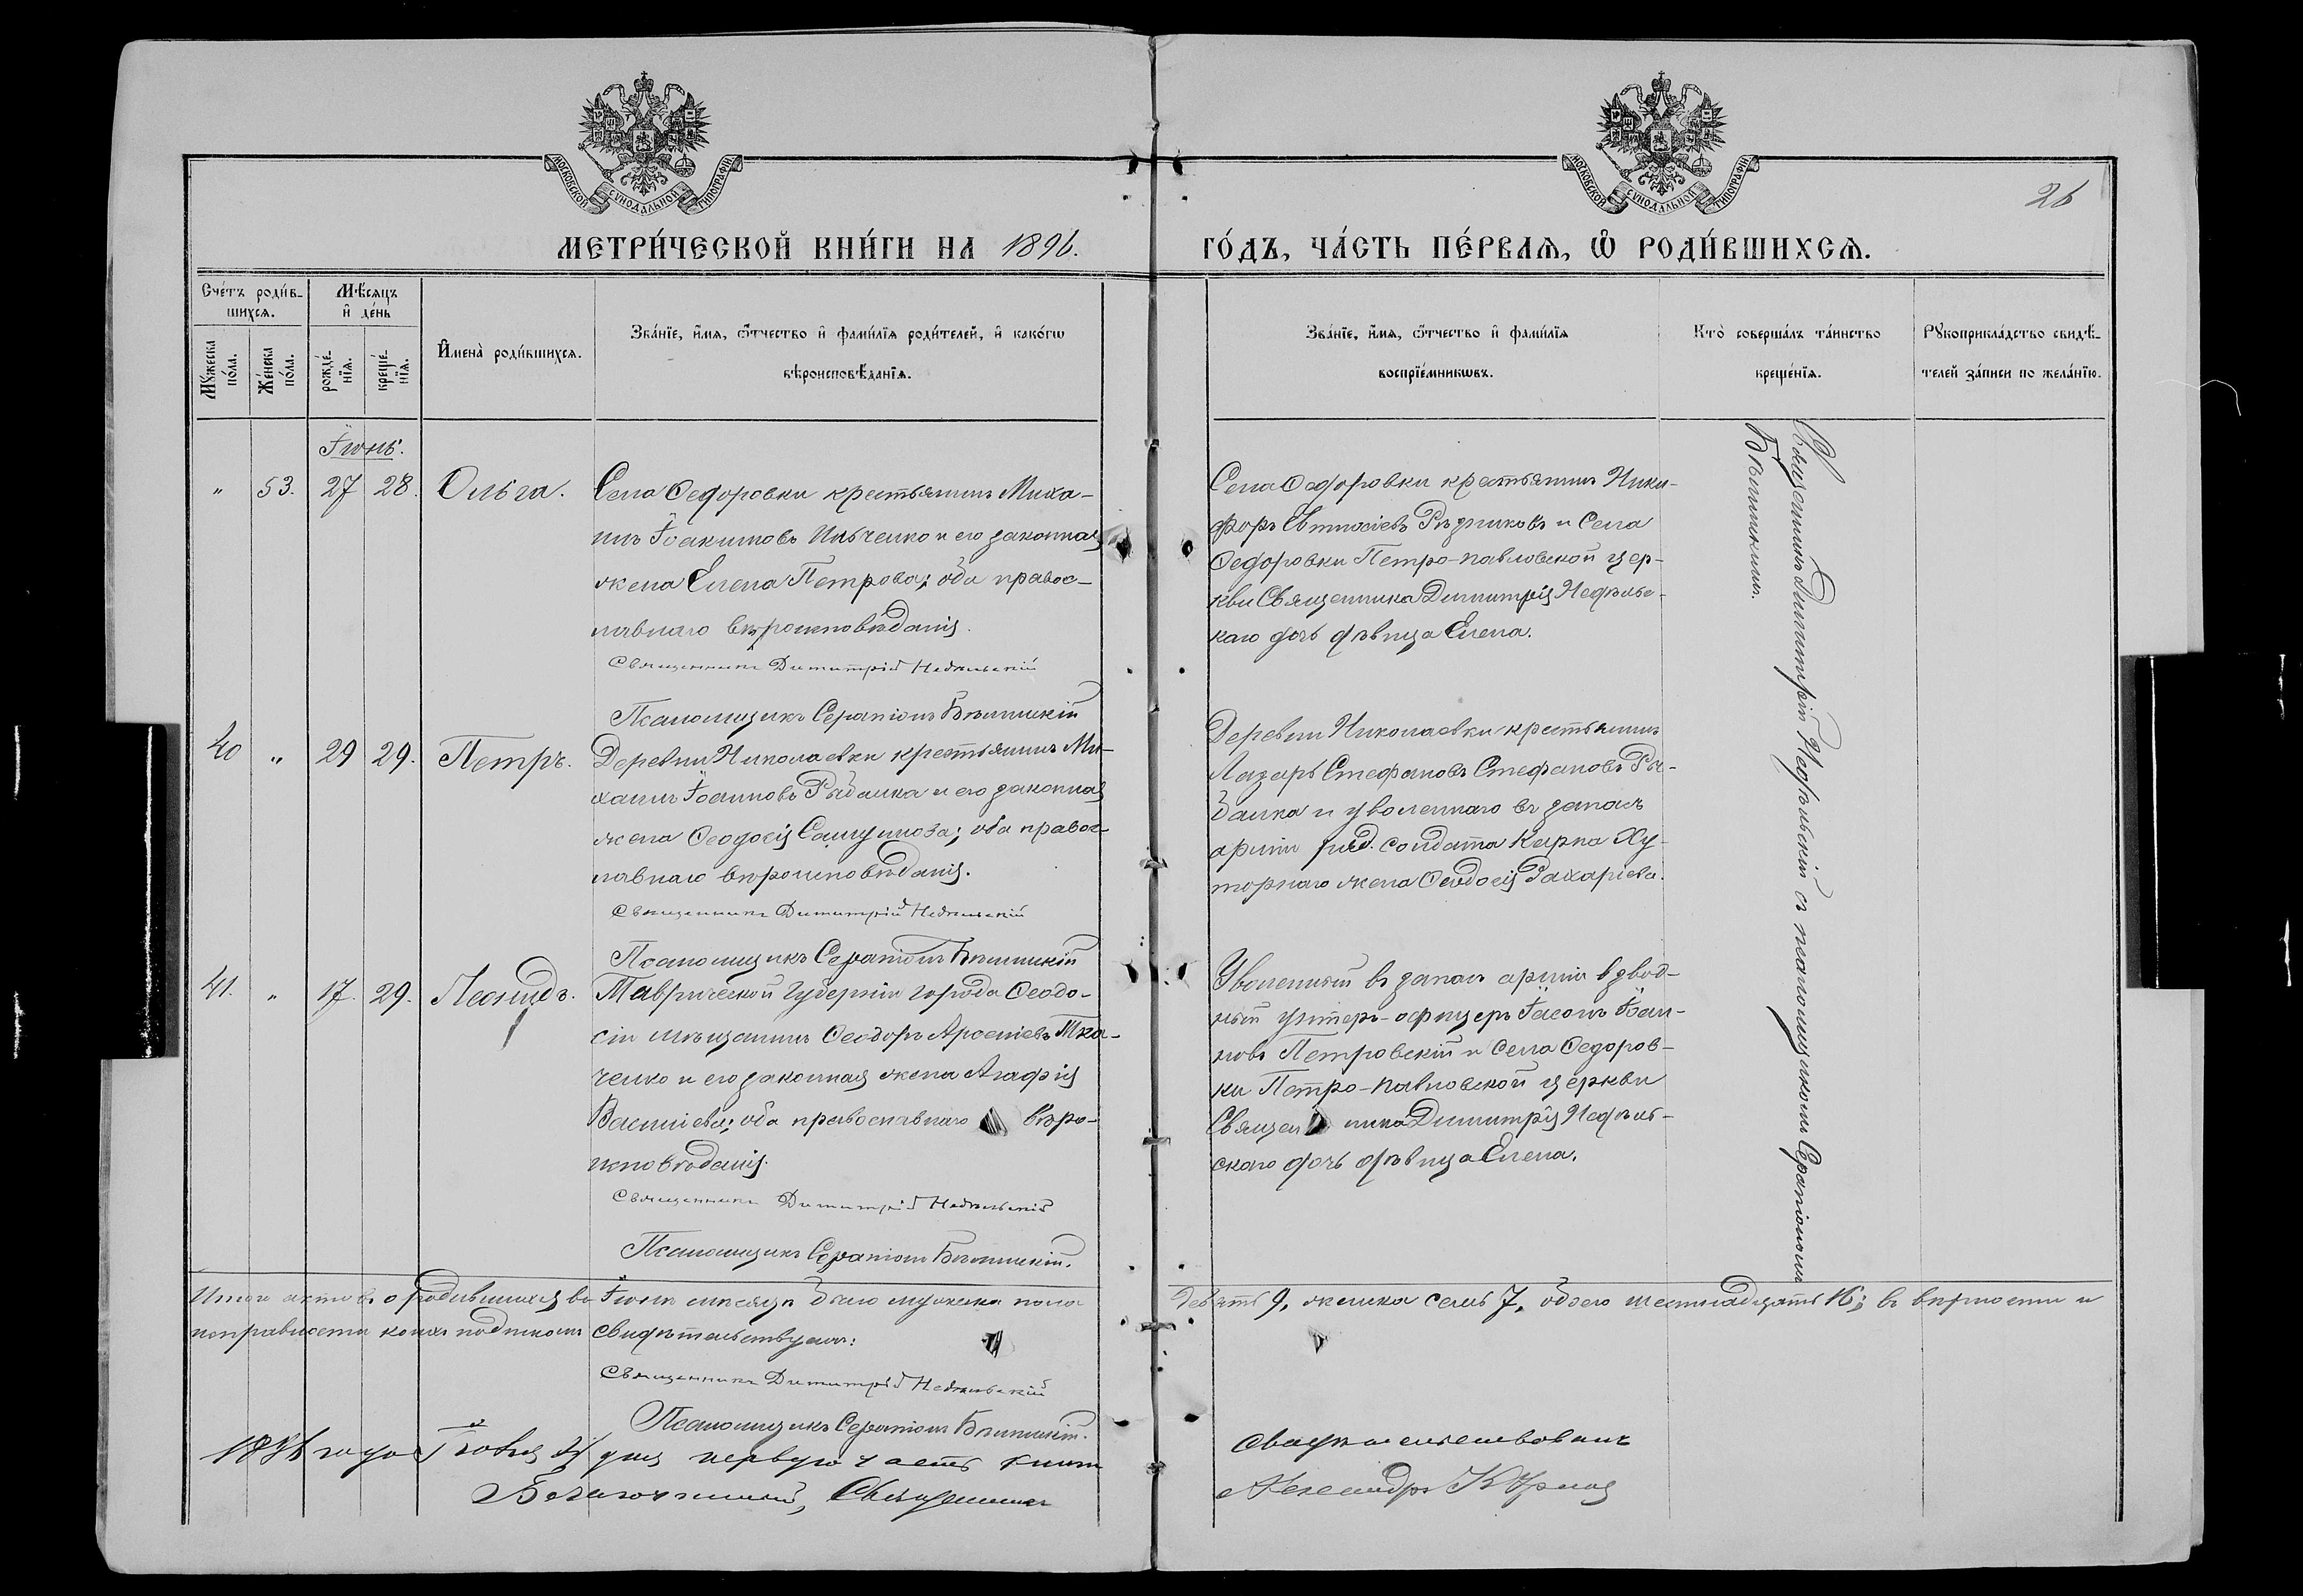 МОСКОВСКОЙ СѴНОДАЛЬНОЙ ТИПОГРАФІИ
МОСКОВСКОЙ СѴНОДАЛЬНОЙ ТИПОГРАФІИ
26
МЕТРИ́ЧЕСКОЙ КНИ́ГИ НА 1896.
ГО́ДЪ, ЧА́СТЬ ПЕ́РВАѦ, Ѡ҆ РОДИ́ВШИХСѦ.
Сче́тъ роди́в-
шихсѧ.
Мꙋ́жеска по́ла.
Же́нска по́ла.
Мѣ́сѧцъ и҆ де́нь
рожде́-нїѧ.
креще́-нїѧ.
И҆мена̀ роди́вшихсѧ.
Зва́нїе, и҆́мѧ, ѻ҆́тчество и҆ фами́лїѧ роди́телей, и҆ како́гѡ
вѣроисповѣ́данїѧ.
Зва́нїе, и҆́мѧ, ѻ҆́тчество и҆ фами́лїѧ
воспрїе́мникѡвъ.
Кто̀ соверша́лъ та́инство
креще́нїѧ.
Рꙋкоприкла́дство свидѣ́-
телей за́писи по жела́нїю.
Іюнь.
" 53. 27 28. Ольга.
Села Ѳедоровки крестьянинъ Миха-
илъ Іоакимовъ Ильченко и его законная
жена Елена Петрова; оба правос-
лавнаго вѣроисповѣданія.
Священникъ Димитрій Недѣльскій
Псаломщикъ Серапіонъ Бѣлинскій
Села Ѳедоровки крестьянинъ Ники-
форъ Рѣзниковъ и Села
Ѳедоровки Петро-Павловской цер-
кви Священника Димитрія Недѣльс-
каго дочь дѣвица Елена.
Священникъ Димитрій Недѣльскій съ псаломщикомъ Серапіономъ
Бѣлинскимъ.
40 " 29 29. Петръ.
Деревни Николаевки крестьянинъ Ми-
хаилъ Іоанновъ Рыбалка и его законная
жена Ѳеодосія Самуилова; оба правос-
лавнаго вѣроисповѣданія.
Священникъ Димитрій Недѣльскій
Псаломщикъ Серапіонъ Бѣлинскій
Деревни Николаевки крестьянинъ
Лазарь Стефановъ Стефановъ Ры-
балка и уволеннаго въ запасъ
арміи ряд. солдата Карпа Ху-
торнаго жена Ѳеодосія Захаріева.
41. " 17. 29. Леонидъ.
Таврической Губерніи города Ѳеодо-
сіи мѣщанинъ Ѳеодоръ Арсеніевъ Тка-
ченко и его законная жена Агафія
Василіева; оба православнаго вѣро-
исповѣданія.
Священникъ Димитрій Недѣльскій
Псаломщикъ Серапіонъ Бѣлинскій.
Уволенный въ запасъ арміи взвод-
ный унтеръ-офицеръ Іасонъ Іоан-
новъ Петровскій и Села Ѳедоров-
ки Петро-Павловской церкви
Священника Димитрія Недѣль-
скаго дочь дѣвица Елена.
Итого актовъ о родившихся во Іюнѣ мѣсяцѣ было мужеска пола девять 9, женска семь 7, обоего шестнадцать 16; въ вѣрности и
исправности коихъ подписомъ свидѣтельствуемъ:
Священникъ Димитрій Недѣльскій
Псаломщикъ Серапіонъ Бѣлинскій.
1896 года дня первую часть книги свидѣтельствовалъ
Благочинный, Священникъ Александръ